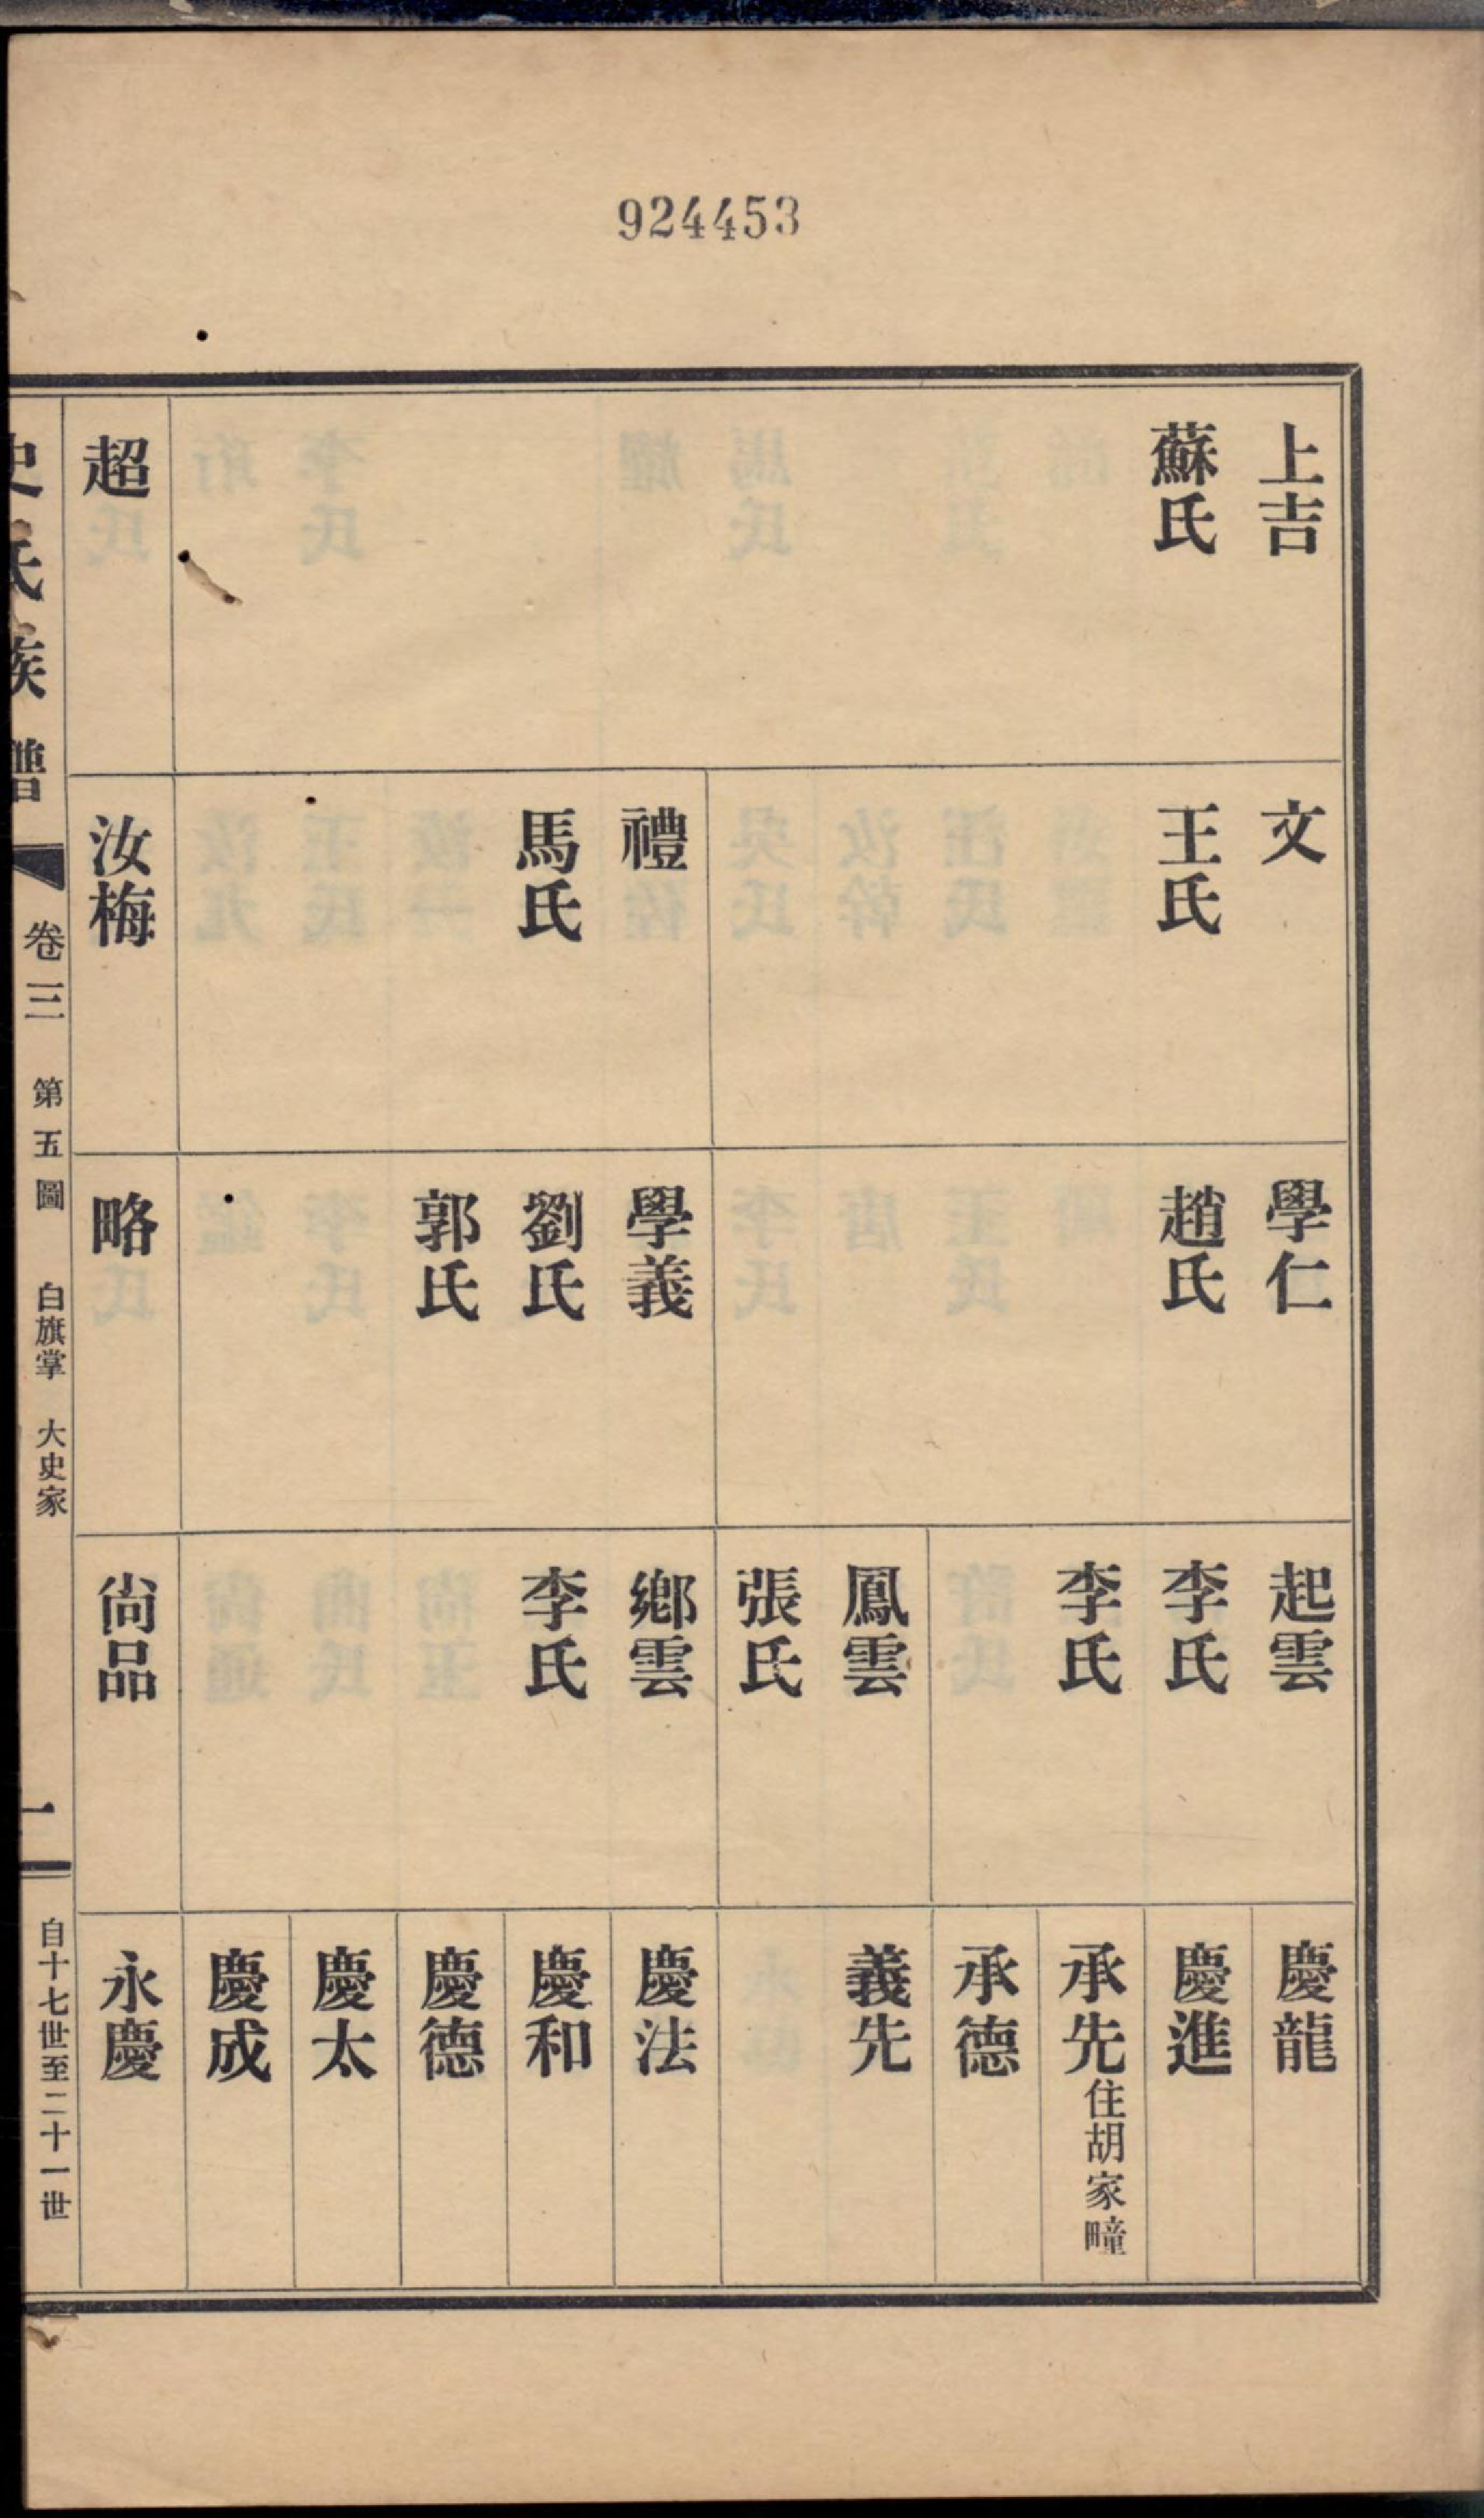 924453
上吉
蘇氏
超
文
王氏
禮
馬氏
汝梅
學仁
趙氏
學義
劉氏
郭氏
略
起雲
李氏
李氏
鳳雲
張氏
鄉雲
李氏
尙品
慶龍
慶進
承先住胡家疃
承德
義先
慶法
慶和
慶德
慶太
慶成
永慶
史氏族譜 卷三 第五圖 白旗掌 大史家 一 自十七世至二十一世